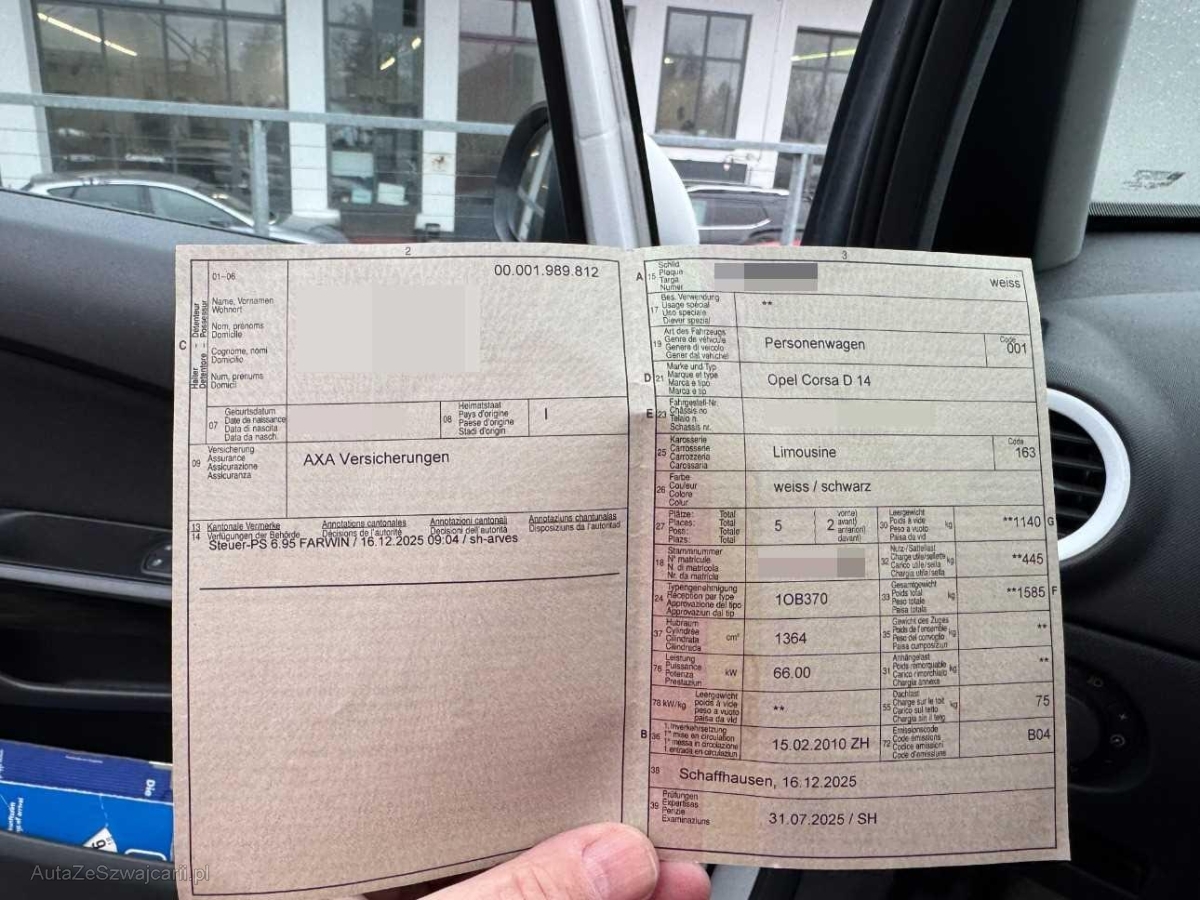 2
01-06
00.001.989.812
C
Détenteur
Possessur
Halter
Detentore
Name, Vornamen
Wohnort
Nom, prénoms
Domicile
Cognome, nomi
Domicilio
Num, prenums
Domicil
07
Geburtsdatum
Date de naissance
Data di nascita
Data da nasch.
08
Heimatstaat
Pays d'origine
Paese d'origine
Stadi d'origin
I
09
Versicherung
Assurance
Assicurazione
Assicuranza
AXA Versicherungen
13
14
Kantonale Vermerke
Verfügungen der Behörde
Annotations cantonales
Décisions de l'autorité
Annotazioni cantonali
Decisioni dell'autorità
Annotaziuns chantunalas
Disposiziuns da l'autoritad
Steuer-PS 6.95 FARWIN / 16.12.2025 09:04 / sh-arves
3
A
15
Schild
Plaque
Targa
Numer
weiss
17
Bes. Verwendung
Usage spécial
Uso speciale
Diever spezial
**
19
Art des Fahrzeugs
Genre de véhicule
Genere di veicolo
Gener dal vehichel
Personenwagen
Code
001
D
21
Marke und Typ
Marque et type
Marca e tipo
Marca e tip
Opel Corsa D 14
E
23
Fahrgestell-Nr.
Châssis no
Telaio n.
Schassis nr.
25
Karosserie
Carrosserie
Carrozzeria
Carossaria
Limousine
Code
163
26
Farbe
Couleur
Colore
Colur
weiss / schwarz
27
Plätze: Total
Places: Total
Posti: Totale
Plazs: Total
5
( 2
vorne)
avant)
anteriori)
davant)
30
Leergewicht
Poids à vide
Peso a vuoto
Paisa da vid
kg
**1140
G
18
Stammnummer
N° matricule
N. di matricola
Nr. da matricla
32
Nutz-/Sattellast
Charge utile/sellette
Carico utile/sella
Chargia utila/sella
kg
**445
24
Typengenehmigung
Réception par type
Approvazione del tipo
Approvaziun dal tip
1OB370
33
Gesamtgewicht
Poids total
Peso totale
Paisa totala
kg
**1585
F
37
Hubraum
Cylindrée
Cilindrata
Cilindrada
cm³
1364
35
Gewicht des Zuges
Poids de l'ensemble
Peso del convoglio
Paisa cumposiziun
kg
**
76
Leistung
Puissance
Potenza
Prestaziun
kW
66.00
31
Anhängelast
Poids remorquable
Carico rimorchiato
Chargia annexa
kg
**
78 kW/kg
Leergewicht
poids à vide
peso a vuoto
paisa da vid
**
55
Dachlast
Charge sur le toit
Carico sul tetto
Chargia sin il tetg
kg
75
B
36
1. Inverkehrsetzung
1re mise en circulation
1a messa in circolazione
1. entrada en circulaziun
15.02.2010 ZH
72
Emissionscode
Code émissions
Codice emissioni
Code d'emissiuns
B04
38
Schaffhausen, 16.12.2025
39
Prüfungen
Expertises
Perizie
Examinaziuns
31.07.2025 / SH
Die
AutaZeSzwajcarii.pl